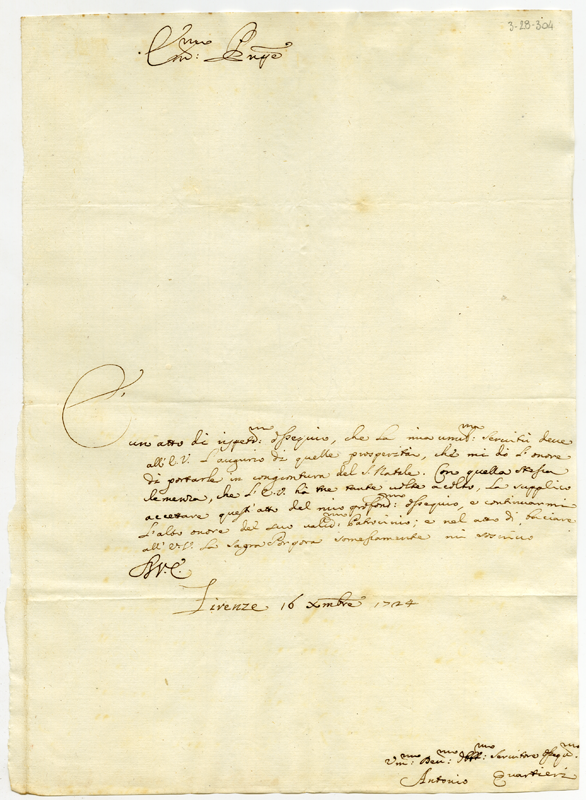 3-28-304
Em:mo Prñpe
È
un atto di rispett:mo ossequio, che la mia umil:ma servitù deve
all'E.V. l'augurio di quelle prosperità, che mi dò l'onore
di portarle in congiontura del S. Natale. Con quella stessa
clemenza, che l'E.V. hà tre tante volte accolto, la supplico
accettare quest'atto del mio profond:mo ossequio, e continuarmi
l'alto onore del suo valid:mo Patrocinio; e nel atto di baciare
all'E.V. la Sagra Porpora sommessamente mi rassegno
Di V.E.
Firenze 16 Xmbre 1724
Um:mo Dev:mo Obbl:mo Servitore Osseq:mo
Antonio Quartieri